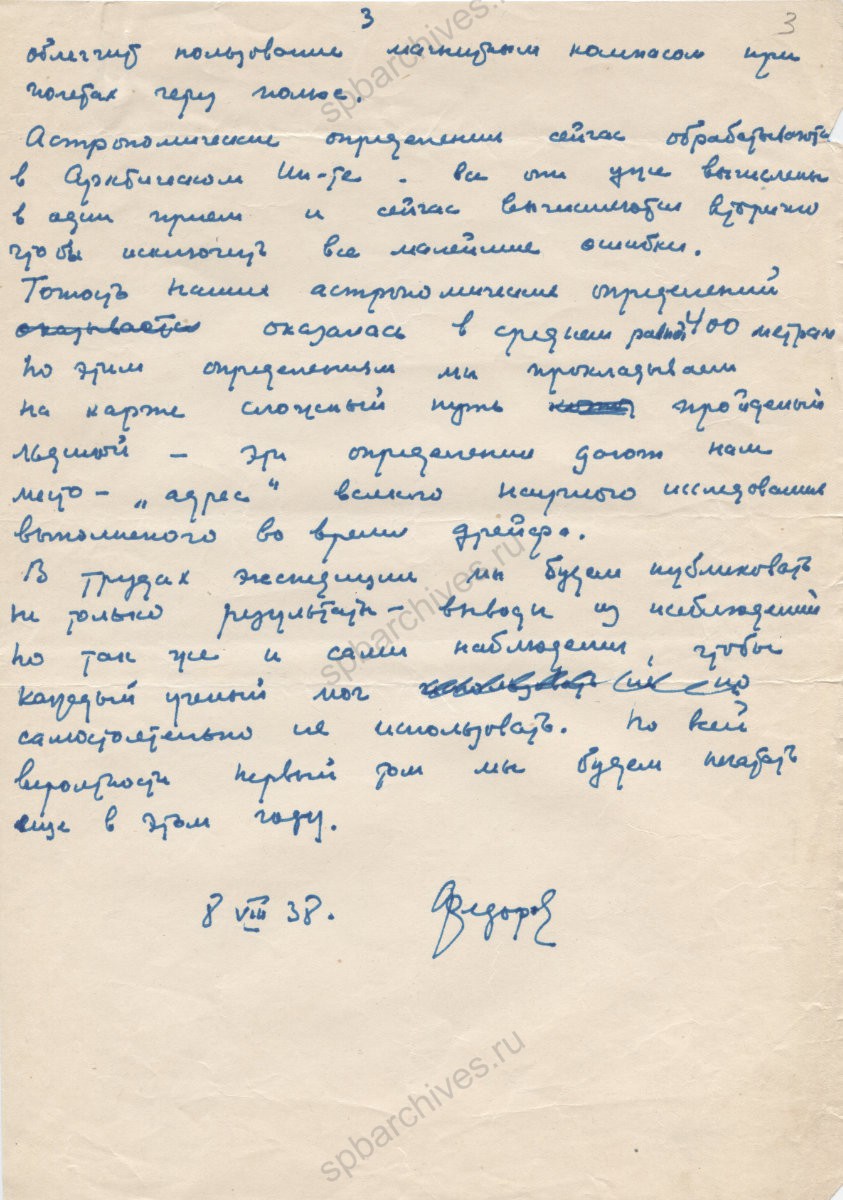 3
3
облегчит пользование магнитным компасом при
полетах через полюс.
Астрономические определения сейчас обрабатываются
в Арктическом Ин-те. все они уже вычислены
в один прием и сейчас вычисляются вторично
чтобы исключить все малейшие ошибки.
Точость наших астрономических определений
оказывается оказалась в среднем равной 400 метрам
По этим определениям мы прокладываем
на карте сложный путь пройденый
льдиной – эти определения дают нам
место – „адрес" всякого научного исследования
выполненого во время дрейфа.
В трудах экспедиции мы будем публиковать
не только результаты – выводы из наблюдений
но так же и сами наблюдения, чтобы
каждый ученый мог
самостоятельно их использовать. По всей
вероятности первый том мы будем печатать
еще в этом году.
8 VIII 38. Федоров
spbarchives.ru
spbarchives.ru
spbarchives.ru